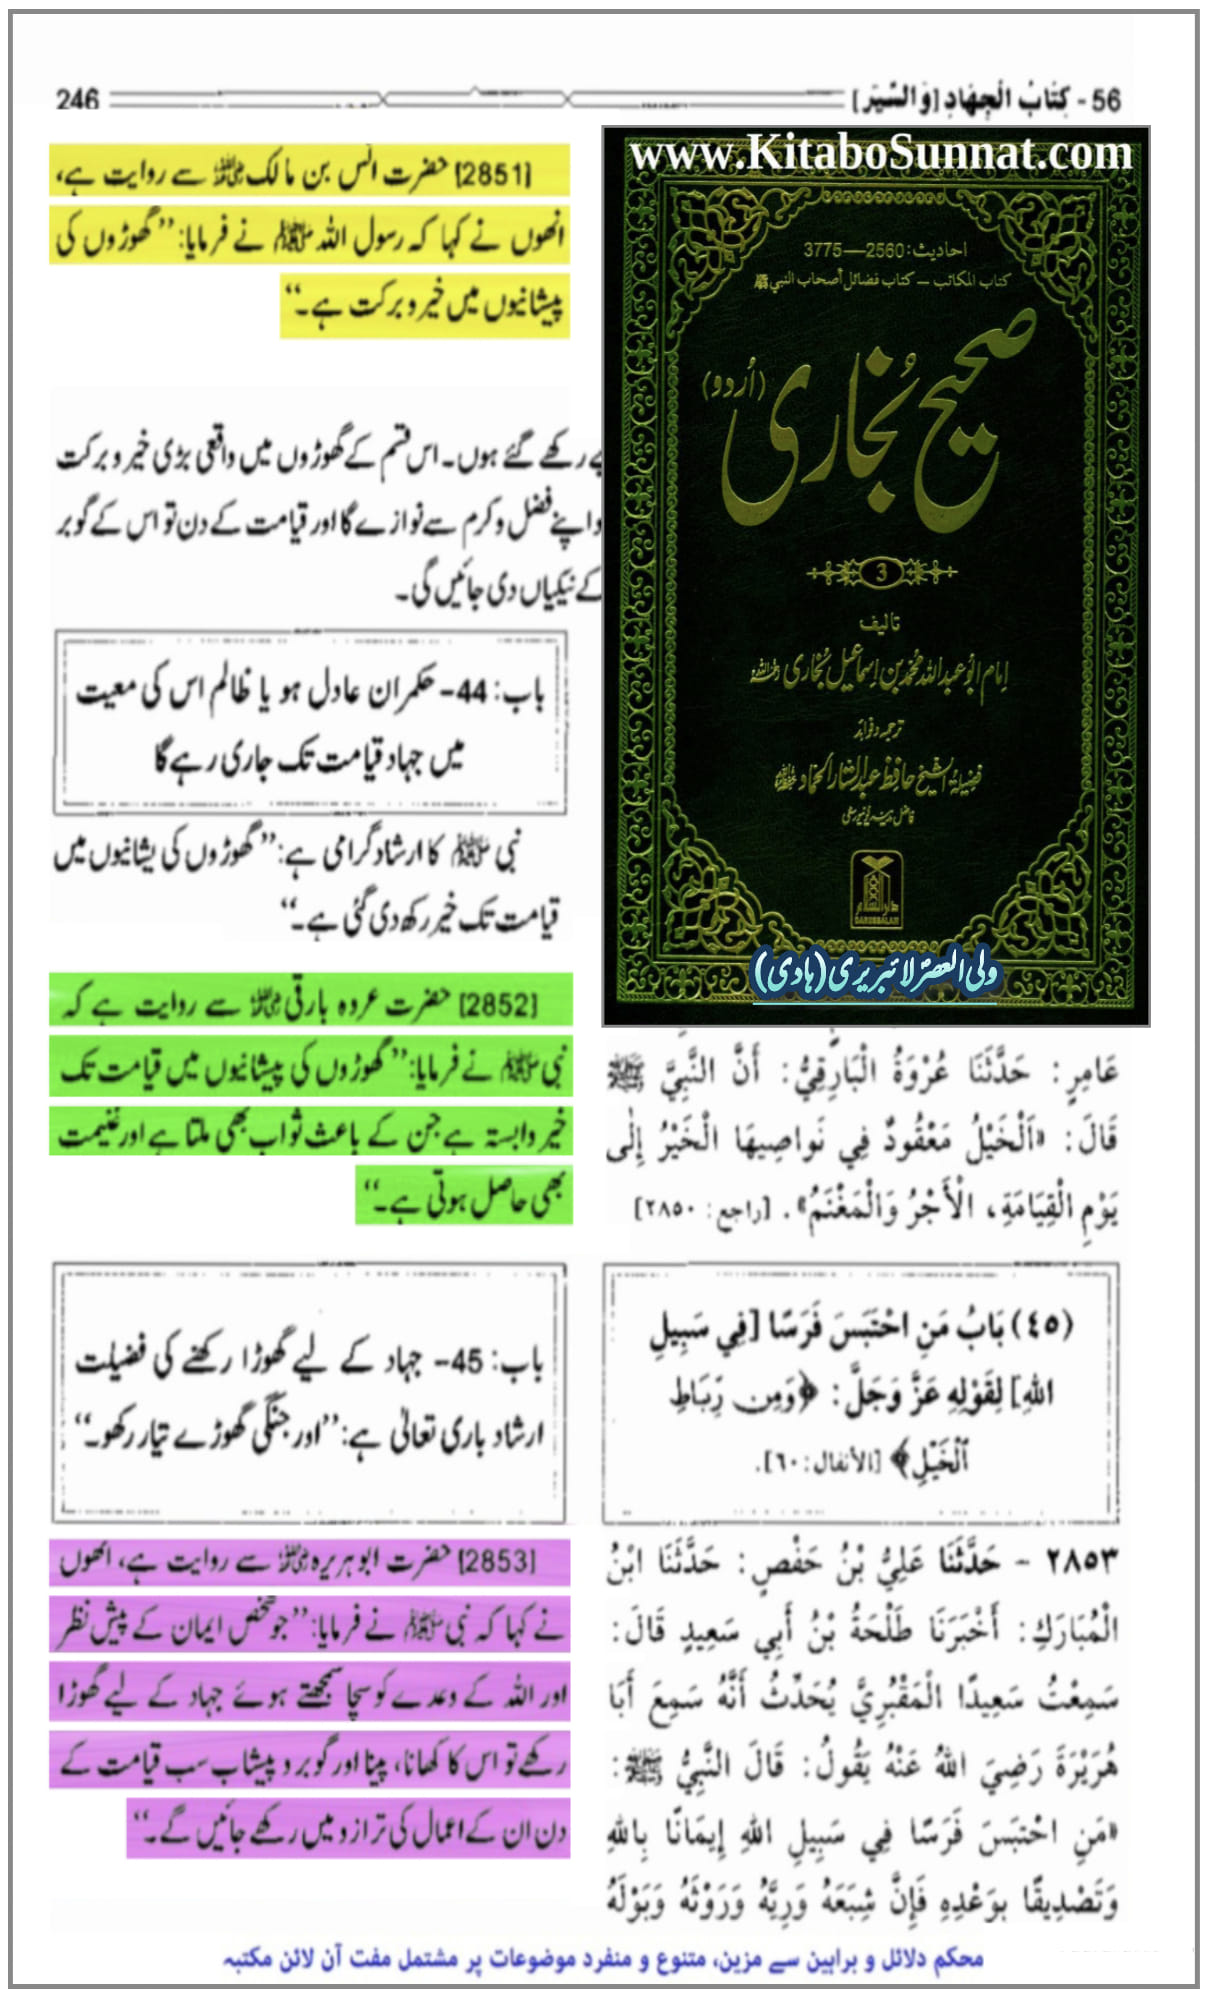 56 - كِتَابُ الْجِهَادِ [وَالسِّيَر]
246
[2851] حضرت انس بن مالک رضی اللہ عنہ سے روایت ہے،
انھوں نے کہا کہ رسول اللہ ﷺ نے فرمایا: ’’گھوڑوں کی
پیشانیوں میں خیر و برکت ہے۔‘‘
رکھے گئے ہوں۔ اس قسم کے گھوڑوں میں واقعی بڑی خیر و برکت
و اپنے فضل و کرم سے نوازے گا اور قیامت کے دن تو اس کے گوبر
کے نیکیاں دی جائیں گی۔
باب: 44- حکمران عادل ہو یا ظالم اس کی معیت
میں جہاد قیامت تک جاری رہے گا
نبی ﷺ کا ارشاد گرامی ہے: ’’گھوڑوں کی یشانیوں میں
قیامت تک خیر رکھ دی گئی ہے۔‘‘
[2852] حضرت عروہ بارقی رضی اللہ عنہ سے روایت ہے کہ
نبی ﷺ نے فرمایا: ’’گھوڑوں کی پیشانیوں میں قیامت تک
خیر وابستہ ہے جن کے باعث ثواب بھی ملتا ہے اور غنیمت
بھی حاصل ہوتی ہے۔‘‘
باب: 45- جہاد کے لیے گھوڑا رکھنے کی فضیلت
ارشاد باری تعالیٰ ہے: ’’اور جنگی گھوڑے تیار رکھو۔‘‘
[2853] حضرت ابوہریرہ رضی اللہ عنہ سے روایت ہے، انھوں
نے کہا کہ نبی ﷺ نے فرمایا: ’’جو شخص ایمان کے پیش نظر
اور اللہ کے وعدے کو سچا سمجھتے ہوئے جہاد کے لیے گھوڑا
رکھے تو اس کا کھانا، پینا اور گوبر و پیشاب سب قیامت کے
دن ان کے اعمال کی ترازو میں رکھے جائیں گے۔‘‘
www.KitaboSunnat.com
احادیث: 2560—3775
كتاب المكاتب – كتاب فضائل أصحاب النبي ﷺ
صحیح بُخاری
(اُردو)
3
تالیف
اِمام ابُو عبداللہ محمد بن اِسماعیل بُخاری رحمہ اللہ
ترجمہ و فوائد
فضیلۃ الشیخ حافظ عبدالستار الحماد حفظہ اللہ
فاضل مدینہ یونیورسٹی
دارالسلام
DARUSSALAM
ولی العصر لائبریری (ہادی)
عَامِرٍ: حَدَّثَنَا عُرْوَةُ الْبَارِقِيُّ: أَنَّ النَّبِيَّ ﷺ
قَالَ: «اَلْخَيْلُ مَعْقُودٌ فِي نَوَاصِيهَا الْخَيْرُ إِلٰى
يَوْمِ الْقِيَامَةِ، الْأَجْرُ وَالْمَغْنَمُ». [راجع: ٢٨٥٠]
(٤٥) بَابُ مَنِ احْتَبَسَ فَرَسًا [فِي سَبِيلِ
اللهِ] لِقَوْلِهِ عَزَّ وَجَلَّ: ﴿وَمِن رِّبَاطِ
ٱلْخَيْلِ﴾ [الأنفال: ٦٠].
٢٨٥٣ - حَدَّثَنَا عَلِيُّ بْنُ حَفْصٍ: حَدَّثَنَا ابْنُ
الْمُبَارَكِ: أَخْبَرَنَا طَلْحَةُ بْنُ أَبِي سَعِيدٍ قَالَ:
سَمِعْتُ سَعِيدًا الْمَقْبُرِيَّ يُحَدِّثُ أَنَّهُ سَمِعَ أَبَا
هُرَيْرَةَ رَضِيَ اللهُ عَنْهُ يَقُولُ: قَالَ النَّبِيُّ ﷺ:
«مَنِ احْتَبَسَ فَرَسًا فِي سَبِيلِ اللهِ إِيمَانًا بِاللهِ
وَتَصْدِيقًا بِوَعْدِهِ فَإِنَّ شِبَعَهُ وَرِيَّهُ وَرَوْثَهُ وَبَوْلَهُ
محکم دلائل و براہین سے مزین، متنوع و منفرد موضوعات پر مشتمل مفت آن لائن مکتبہ